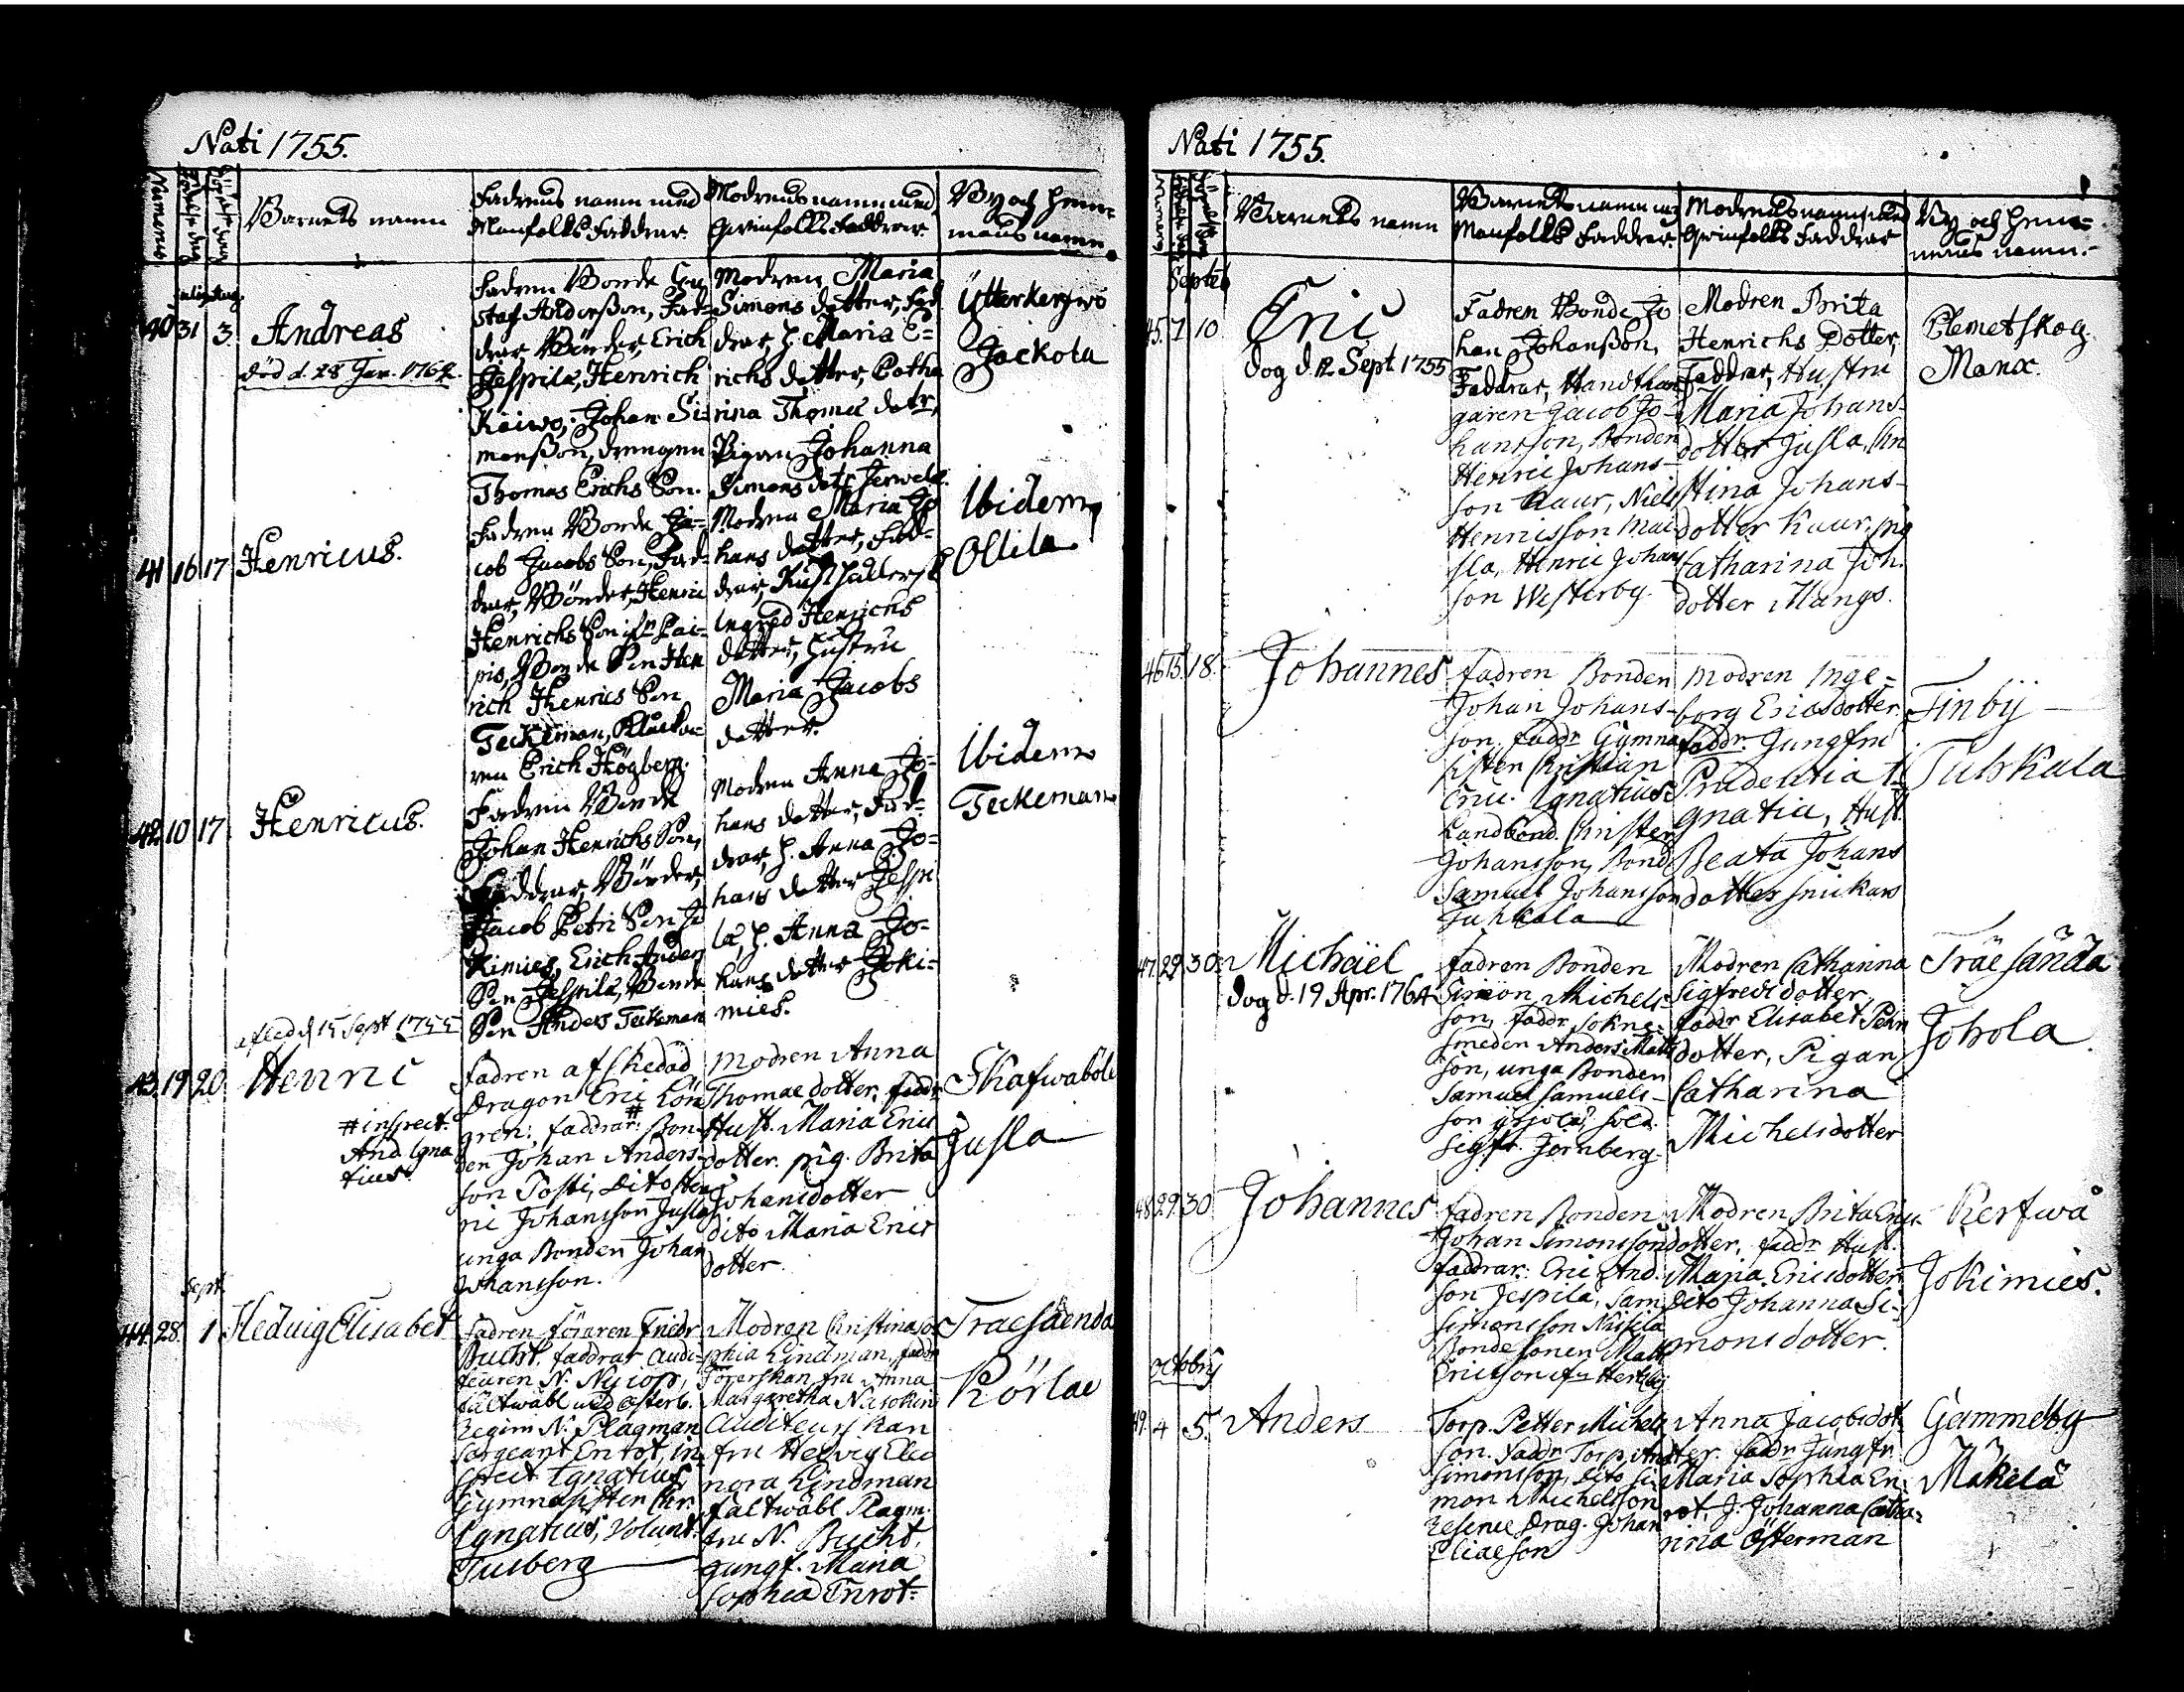 Nati 1755.
Numerus
Barnets namn
Fadrens namn med
Manfolks Faddrar
Modrens namn med
Qvinfolks Faddrar
By och Hem-
mans namn
40 31 3
Andreas
död d. 28 Jan. 1762.
Fadren Bonde Gu-
staf Anderßon, Fad-
drar, Bönder, Erich
Jespila, Henrich
Kaiwo, Johan Si-
monßon, drengen
Thomas Erichs Son.
Modren Maria
Simons dotter, Fad
drar, h. Maria E-
richs dotter, Catha
rina Thomæ dotr,
Pigan Johanna
Simons dotr
Ytterkerfwo
Jackola
41 16 17
Henricus.
Fadren Bonde Ja-
cob Jacobs Son, Fad-
drar, Bönder, Henric
Henrichs Son ifr. Pai-
pis, Bonde Son Hen
rich Henrics Son
Teckeman, Klacka-
ren Erich Högberg.
Modren Maria Jo
hans dotter, Fad-
drar, Rusthållersk
Ingred Henrichs
dotter, Hustru
Maria Jacobs
dotter.
Ibidem
Ollila
42 10 17
Henricus.
Fadren Bonde
Johan Henrichs Son,
Faddrar, Bönder,
Jacob Petri Son Jo
kimies, Erich Anders
Son Jespila, Bonde
Son Anders Teckeman
Modren Anna Jo-
hans dotter, Fad-
drar, h. Anna Jo-
hans dotter Jespi
la, h. Anna Jo-
hans dotter Joki-
mies.
Ibidem
Teckeman
afled d 15 Sept 1755
43 19 20
Henric
# inspect.
And. Igna
tius.
fadren afskedad
Dragon Eric Lön
gren: faddrar # Bon-
den Johan Anders-
son Posti, Dito Hen
ric Johansson Jusla
unga Bonden Johan
Johansson.
Modren Anna
Thomae dotter, faddr
Hust. Maria Erics
dotter. pig. Brita
Johansdotter
dito Maria Erics
dotter.
Skafwaböle
Jusla
Sept.
44. 28. 1.
Hedwig Elisabet
fadren föraren Fredr
Bucht. faddrar Audi-
teuren N. Nycop,
fältwäbl wid Österb.
Regim N. Plagman
Sergeant Enrot, in
spect Ignatius,
Gymnasisten Chr.
Ignatius, Volunt.
Tulberg
Modren Christina So
phia Lindman, faddr
Förerskan fru Anna
Margaretha
Auditeurskan
fru Hedvig Eleo
nora Lindman
fältwäbl Plagm.
fru N. Bucht,
jungf. Maria
Sophia Enrot
Traesaenda
Körlae
Nati 1755.
Barnets namn
Barnets namn med
Manfolks Faddrar
Modrens namn med
Qwinfolks Faddrar
By och Hem-
mans namn.
Septeb
45. 7 10
Eric
dog d. 12. Sept. 1755
Fadren Bonde Jo
han Johanßon,
Faddrar, Handthan
garen Jacob Jo-
hansson, Bonden
Henric Johans-
son Kaur, Niels
Henricsson
sla, Henric Johans
son Westerby.
Modren Brita
Henrichs Dotter,
Faddrar, Hustru
Maria Johans-
dotter Jusla, Chri
stina Johans-
dotter Kaur, pig
Catharina Joh.
dotter Mangs.
Clemetskog
Manx.
46 15. 18.
Johannes
fadren Bonden
Johan Johans-
son. faddr Gymna
sisten Christian
Eric. Ignatius
Landbond. Christer
Johansson, Bond
Samuel Johansson
Tuhkala
Modren Inge-
borg Ericsdotter
faddr. Jungfru
Prudentia I-
gnatia, Hust.
Beata Johans
dotter Snickars
Finbÿ
Tuhkala
47. 29. 30.
Michaël
dog d. 19 Apr. 1764
fadren Bonden
Simon Michels-
son, faddr. sokne-
smeden Anders Matts
son, unga Bonden
Samuel Samuels-
son Yrjola, sold.
Sigfr. Jernberg.
Modren Catharina
Sigfredsdotter
faddr Elisabet Pehrs
dotter, Pigan
Catharina
Michelsdotter
Träesända
Johola
48 29. 30
Johannes
fadren Bonden
Johan Simonsson
faddrar: Eric And.
son Jespila, Sam.
Simonsson Nissila
Bondesonen Matts
Ericsson ifr Hertzby
Modren Brita Erics
dotter, faddr Hust.
Maria Ericsdotter
Dito Johanna Si-
monsdotter.
Kerfwå
Jokimies.
octobris
49. 4 5.
Anders
Torp. Petter Michels
son. faddr Torp. And.
Simonsson, dito Si
mon Michelsson
Reserve Drag. Johan
Eliaeson
Anna Jacobsdot
ter. faddr Jungfr.
Maria Sophia En
rot, J. Johanna Catha-
rina Österman
Gammelby
Mäkelä